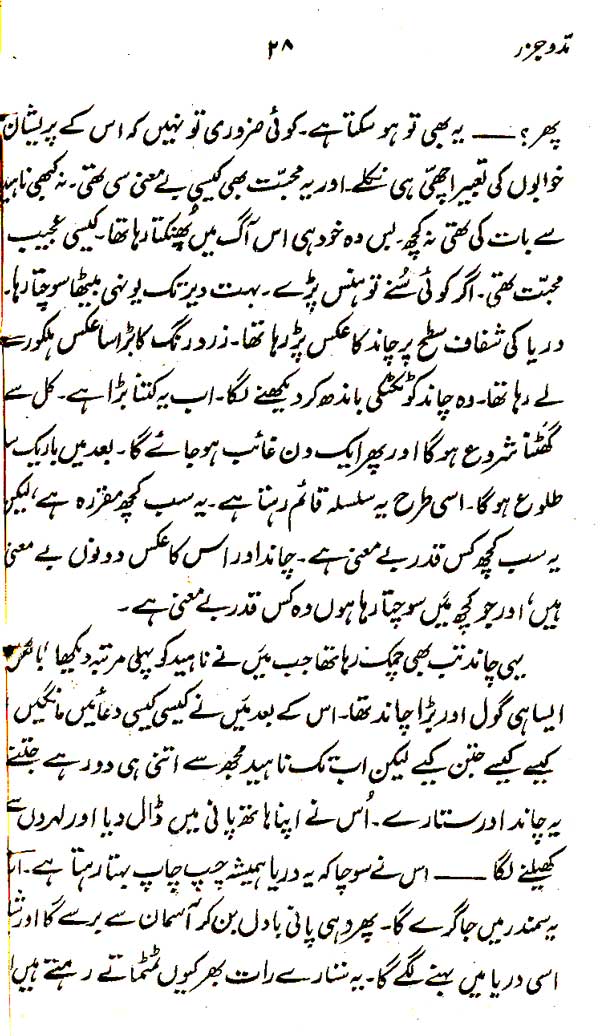 مدوجزر ۲۸
پھر؟ —— یہ بھی تو ہو سکتا ہے۔ کوئی ضروری تو نہیں کہ اس کے پریشان
خوابوں کی تعبیر اچھی ہی نکلے۔ اور یہ محبت بھی کیسی بے معنی سی تھی۔ نہ کبھی ناہید
سے بات کی تھی نہ کچھ۔ بس وہ خود ہی اس آگ میں پُھنکتا رہا تھا۔ کیسی عجیب
محبت تھی۔ اگر کوئی سُنے تو ہنس پڑے۔ بہت دیر تک یونہی بیٹھا سوچتا رہا۔
دریا کی شفاف سطح پر چاند کا عکس پڑ رہا تھا۔ زرد رنگ کا بڑا سا عکس ہلکورے
لے رہا تھا۔ وہ چاند کو ٹکٹکی باندھ کر دیکھنے لگا۔ اب یہ کتنا بڑا ہے۔ کل سے
گھٹنا شروع ہو گا اور پھر ایک دن غائب ہو جائے گا۔ بعد میں باریک سا
طلوع ہو گا۔ اسی طرح یہ سلسلہ قائم رہتا ہے۔ یہ سب کچھ مقررہ ہے، لیکن
یہ سب کچھ کس قدر بے معنی ہے۔ چاند اور اس کا عکس دونوں بے معنی
ہیں، اور جو کچھ مَیں سوچتا رہا ہوں وہ کس قدر بے معنی ہے۔
یہی چاند تب بھی چمک رہا تھا جب مَیں نے ناہید کو پہلی مرتبہ دیکھا،
ایسا ہی گول اور بڑا چاند تھا۔ اس کے بعد مَیں نے کیسی کیسی دعائیں مانگیں،
کیسے کیسے جتن کیے لیکن اب تک ناہید مجھ سے اتنی ہی دور ہے جتنے
یہ چاند اور ستارے۔ اُس نے اپنا ہاتھ پانی میں ڈال دیا اور لہروں سے
کھیلنے لگا —— اس نے سوچا کہ یہ دریا ہمیشہ چپ چاپ بہتا رہتا ہے۔
یہ سمندر میں جا گرے گا۔ پھر وہی پانی بادل بن کر آسمان سے برسے گا اور
اسی دریا میں بہنے لگے گا۔ یہ ستارے رات بھر کیوں ٹمٹماتے رہتے ہیں